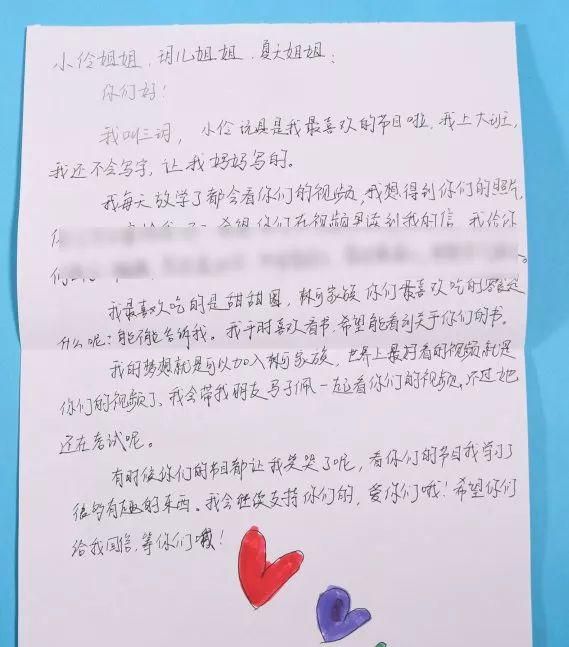 小伶姐姐，玥儿姐姐，夏天姐姐：
你们好！
我叫三词，小伶玩具是我最喜欢的节目啦，我上大班，
我还不会写字，让我妈妈写的。
我每天放学了都会看你们的视频，我想得到你们的照片，
希望你们在视频里读到我的信，我给你
们
我最喜欢吃的是甜甜圈，家族你们最喜欢吃的零食是
什么呢？能不能告诉我。我平时喜欢看书，希望能看到关于你们的书。
我的梦想就是可以加入家族，世界上最好看的视频就是
你们的视频了，我会带我朋友马子佩一起看你们的视频，不过她
还在考试呢。
有时候你们的节目都让我笑哭了呢，看你们的节目我学习了
很多有趣的东西。我会继续支持你们的，爱你们哦！希望你们
给我回信，等你们哦！